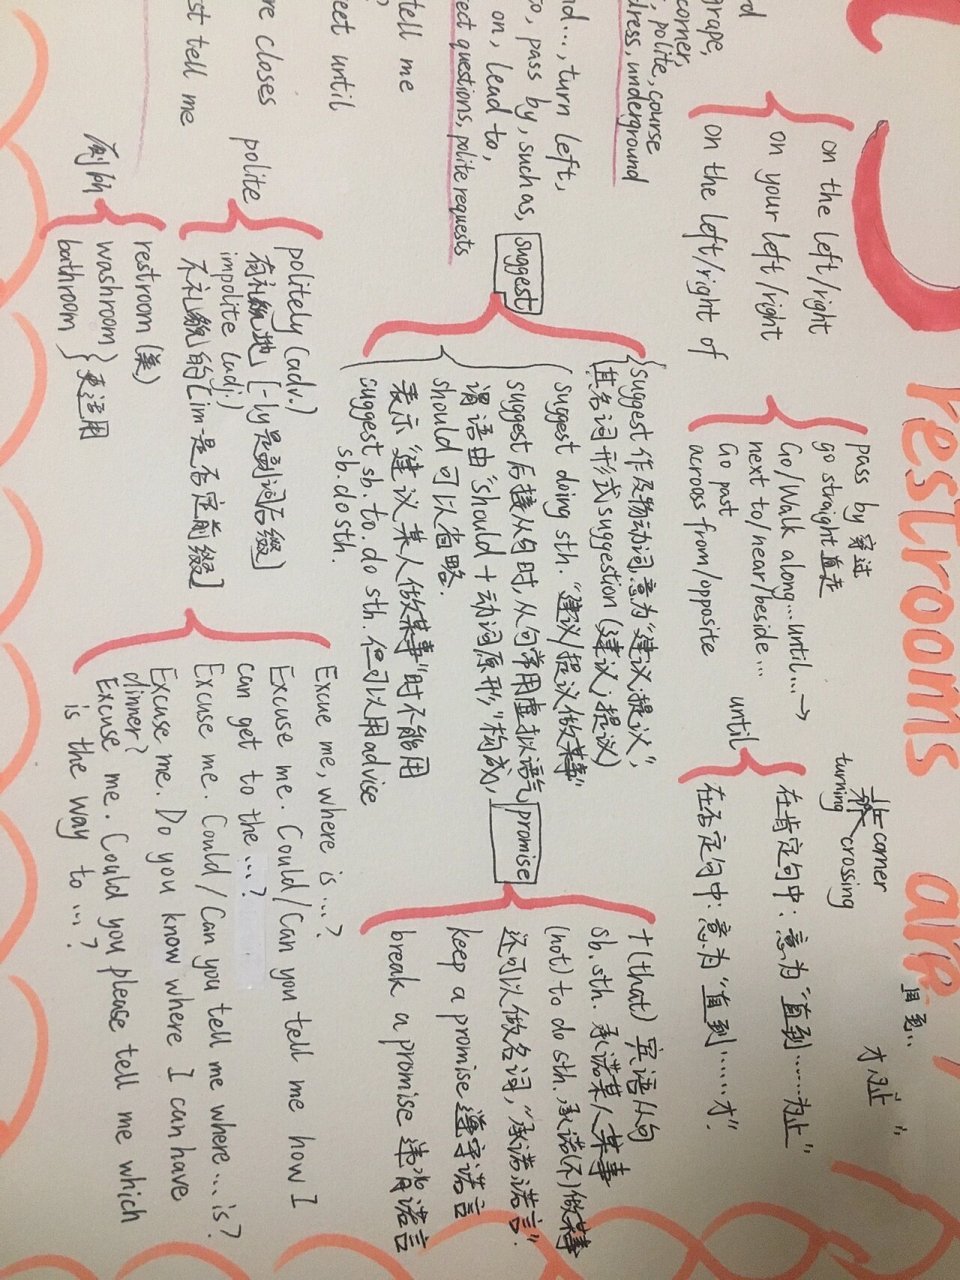 restrooms are
grape,
corner,
polite, course
dress, underground
nd..., turn left,
to, pass by, such as,
on, lead to,
ect questions, polite requests
tell me
eet until
re closes
st tell me
on the left/right
on your left/right
on the left/right of
pass by 穿过
go straight 直走
Go/Walk along...until...→
next to/near/beside...
Go past
across from/opposite
turning
corner
crossing
until
在肯定句中：意为“直到……为止”
在否定句中：意为“直到……才”.
直到...
才
止
”
suggest
suggest 作及物动词,意为“建议;提议”,
其名词形式suggestion (建议;提议)
suggest doing sth. “建议/提议做某事”
suggest后接从句时,从句常用虚拟语气
谓语由“should + 动词原形”构成,
should可以省略.
表示“建议某人做某事”时不能用
suggest sb. to. do sth. 但可以用advise
sb. do sth.
promise
+(that) 宾语从句
sb. sth. 承诺某人某事
(not) to do sth. 承诺(不)做某事
还可以做名词,“承诺;诺言”.
keep a promise 遵守诺言
break a promise 违背诺言
polite
politely (adv.)
有礼貌地 [-ly是副词后缀]
impolite (adj.)
不礼貌的 [im-是否定前缀]
厕所
restroom (美)
washroom
bathroom
} 更适用
Excue me, where is ...?
Excuse me. Could/Can you tell me how I
can get to the ...?
Excuse me. Could/Can you tell me where...is?
Excuse me. Do you know where I can have
dinner?
Excuse me. Could you please tell me which
is the way to ...?